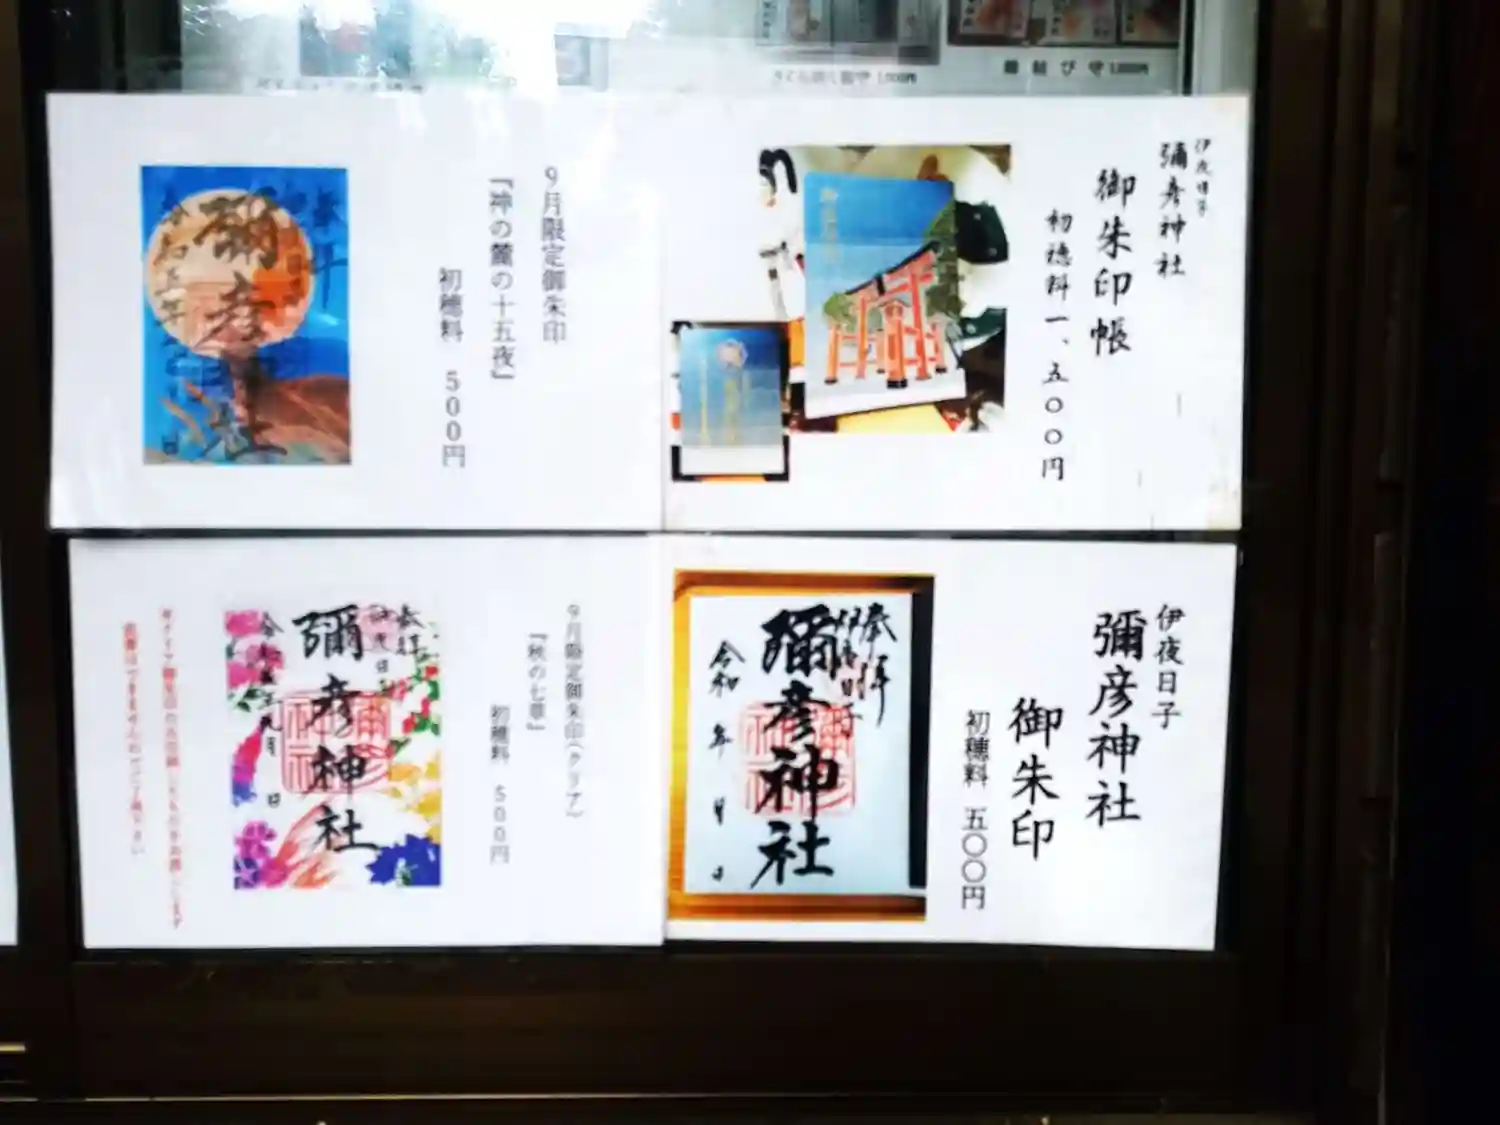 縁結び守 1,000円
伊夜日子
彌彦神社
御朱印帳
初穂料一、五〇〇円
9月限定御朱印
『神の麓の十五夜』
初穂料 500円
奉拝
彌彦神社
伊夜日子
彌彦神社
御朱印
初穂料 五〇〇円
奉拝
伊夜日子
彌彦神社
令和 年 月 日
9月限定御朱印(クリア)
『秋の七草』
初穂料 500円
奉拝
伊夜日子
彌彦神社
令和五年九月 日